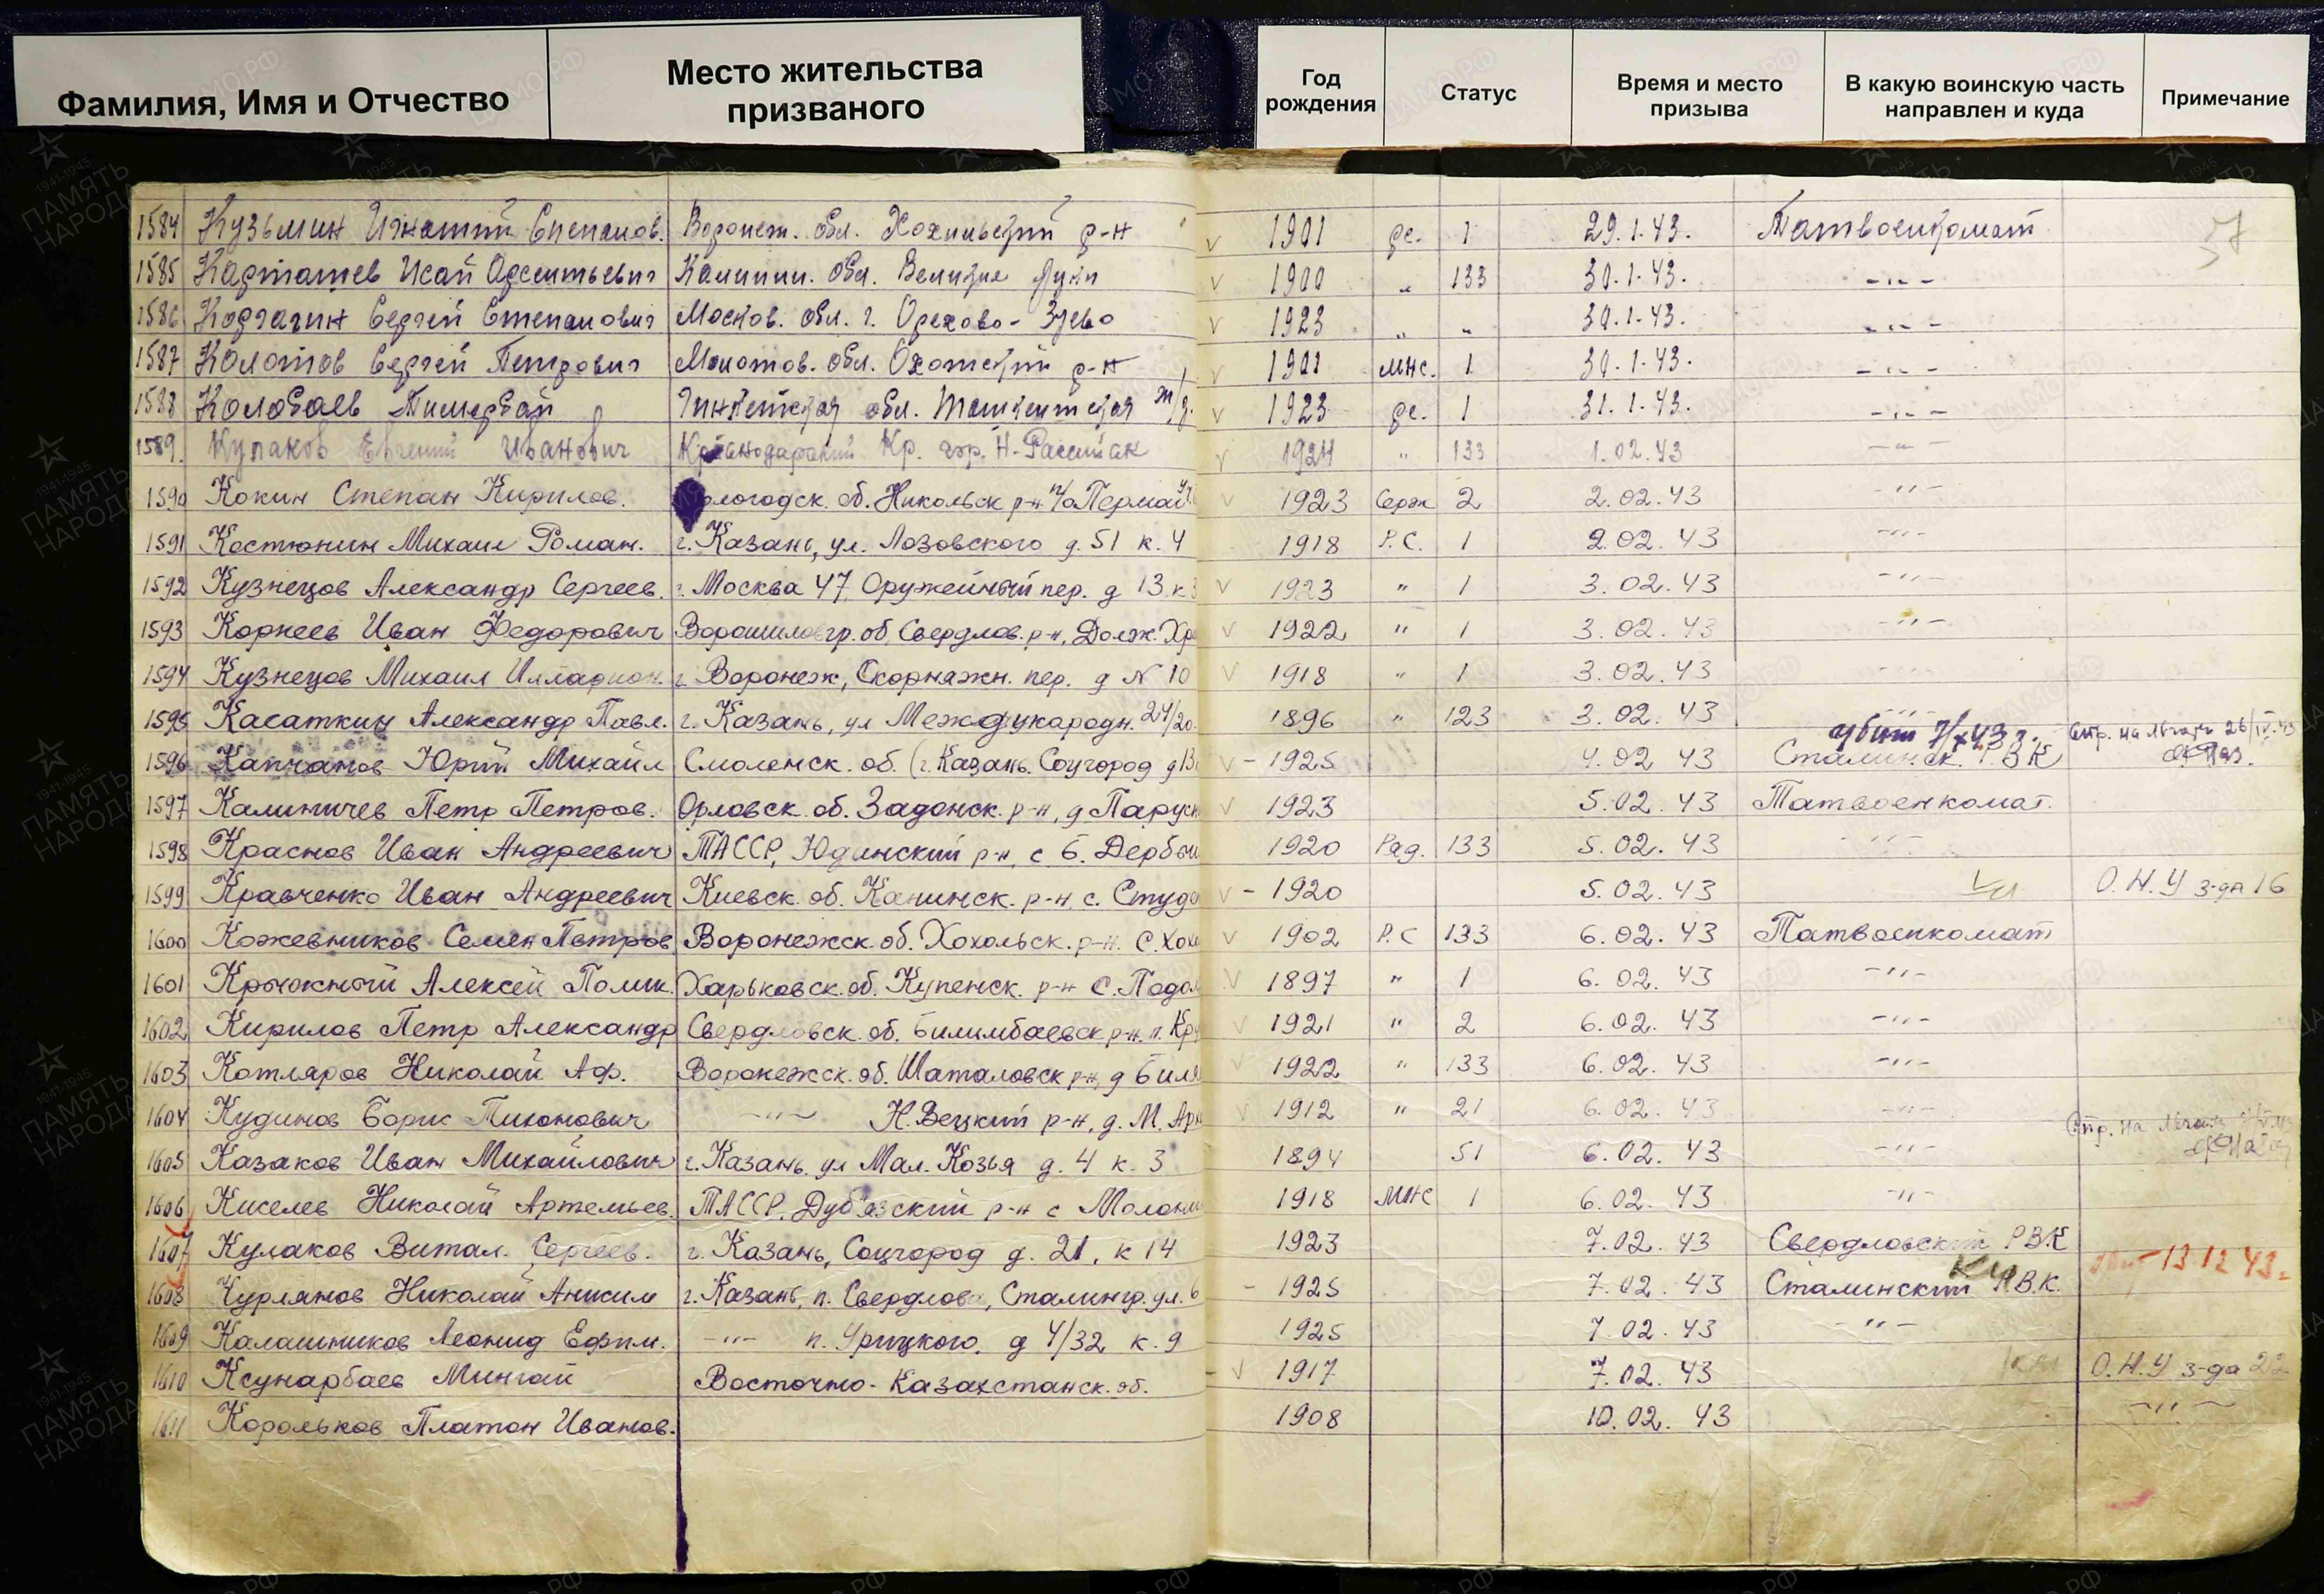 Фамилия, Имя и Отчество
Место жительства призваного
Год рождения
Статус
Время и место призыва
В какую воинскую часть направлен и куда
Примечание
37
1584 Кузьмин Игнатий Степанов. Воронеж. обл. Хохольский р-н v 1901 рс. 1 29.1.43. Татвоенкомат
1585 Карташев Исай Арсентьевич Калинин. обл. Великие Луки v 1900 „ 133 30.1.43. -„-
1586 Корчагин Сергей Степанович Москов. обл. г. Орехово-Зуево v 1923 „ „ 30.1.43. -„-
1587 Колотов Сергей Петрович Молотов. обл. р-н v 1901 мнс. 1 30.1.43. -„-
1588 Колобаев обл. Ташкентская ж/д. v 1923 рс. 1 31.1.43. -„-
1589. Кулаков Евгений Иванович Краснодарский Кр. гор. Н- v 1924 „ 133 1.02.43 -„-
1590 Кокин Степан Кирилов. Вологодск. об. Никольск р-н п/о v 1923 Серж 2 2.02.43 -„-
1591 Костюнин Михаил Роман. г. Казань, ул. Лозовского д. 51 к. 4 1918 Р.С. 1 2.02.43 -„-
1592 Кузнецов Александр Сергеев. г. Москва 47 Оружейный пер. д 13 к. v 1923 „ 1 3.02.43 -„-
1593 Корнеев Иван Федорович Ворошиловгр. об. Свердлов. р-н, Долж. v 1922 „ 1 3.02.43 -„-
1594 Кузнецов Михаил Илларион. г. Воронеж, Скорняжн. пер. д № 10 v 1918 „ 1 3.02.43 -„-
1595 Касаткин Александр Павл. г. Казань, ул Международн. 24/20 1896 „ 123 3.02.43 -„-
убит 7/х 43 г.
1596 Капчанов Юрий Михайл Смоленск. об. (г. Казань. Соцгород д 13 v - 1925 4.02 43 Сталинск. Р.В.К
1597 Калиничев Петр Петров. Орловск. об. Задонск. р-н, д v 1923 5.02.43 Татвоенкомат.
1598 Краснов Иван Андреевич ТАССР, Юдинский р-н, с Б. 1920 Ряд. 133 5.02.43 -„-
1599 Кравченко Иван Андреевич Киевск. об. р-н. с. v - 1920 5.02.43 О.Н.У з-да 16
1600 Кожевников Семен Петров Воронежск. об. Хохольск. р-н. с. v 1902 Р.С 133 6.02.43 Татвоенкомат
1601 Крюжный Алексей Харьковск. об. Купенск. р-н с. v 1897 „ 1 6.02.43 -„-
1602 Кирилов Петр Александр Свердловск. об. Билимбаевск р-н. п. v 1921 „ 2 6.02.43 -„-
1603 Котляров Николай Аф. Воронежск. об. Шаталовск р-н, д v 1922 „ 133 6.02.43 -„-
1604 Кудинов Борис Тихонович -„- р-н, д. М. v 1912 „ 21 6.02.43 -„-
1605 Казаков Иван Михайлович г. Казань. ул Мал. Козья д. 4 к. 3 1894 51 6.02.43 -„-
1606 Киселев Николай Артемьев. ТАССР, Дубъязский р-н с 1918 МНС 1 6.02.43 -„-
1607 Кулаков Витал. Сергеев. г. Казань, Соцгород д. 21, к 14 1923 7.02.43 Свердловский РВК
1608 Курлянов Николай Анисим г. Казань, п. Свердлова, Сталингр. ул. 6 - 1925 7.02.43 Сталинский Р.В.К. 13 12 43
1609 Калашников Леонид Ефим. -„- п. Урицкого, д 4/32 к. 9 1925 7.02.43 -„-
1610 Ксунарбаев Мингай Восточно-Казахстанск. об. - v 1917 7.02.43 О.Н.У з-да 22
1611 Корольков Платон Иванов. 1908 10.02.43 -„-